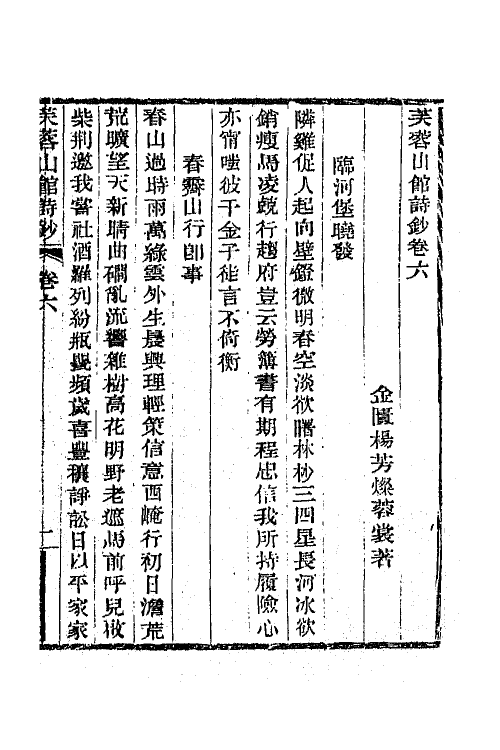 芙蓉山館詩鈔卷六
金匱楊芳燦蓉裳著
臨河堡曉發
隣雞促人起向壁鐙微明春空淡欲曙林杪三四星長河冰欲
銷瘦馬凌兢行趨府豈云勞簿書有期程忠信我所持履險心
亦甯嗤彼千金子徒言不倚衡
春霽山行卽事
春山過時雨萬綠雲外生晨興理輕策信意西崦行初日澹荒
荒曠望天新睛曲磵亂流響雜樹高花明野老遮馬前呼兒啟
柴荆邀我嘗社酒羅列紛瓶罌頻歲喜豐穰諍訟日以平家家
芙蓉山館詩鈔 卷六 一